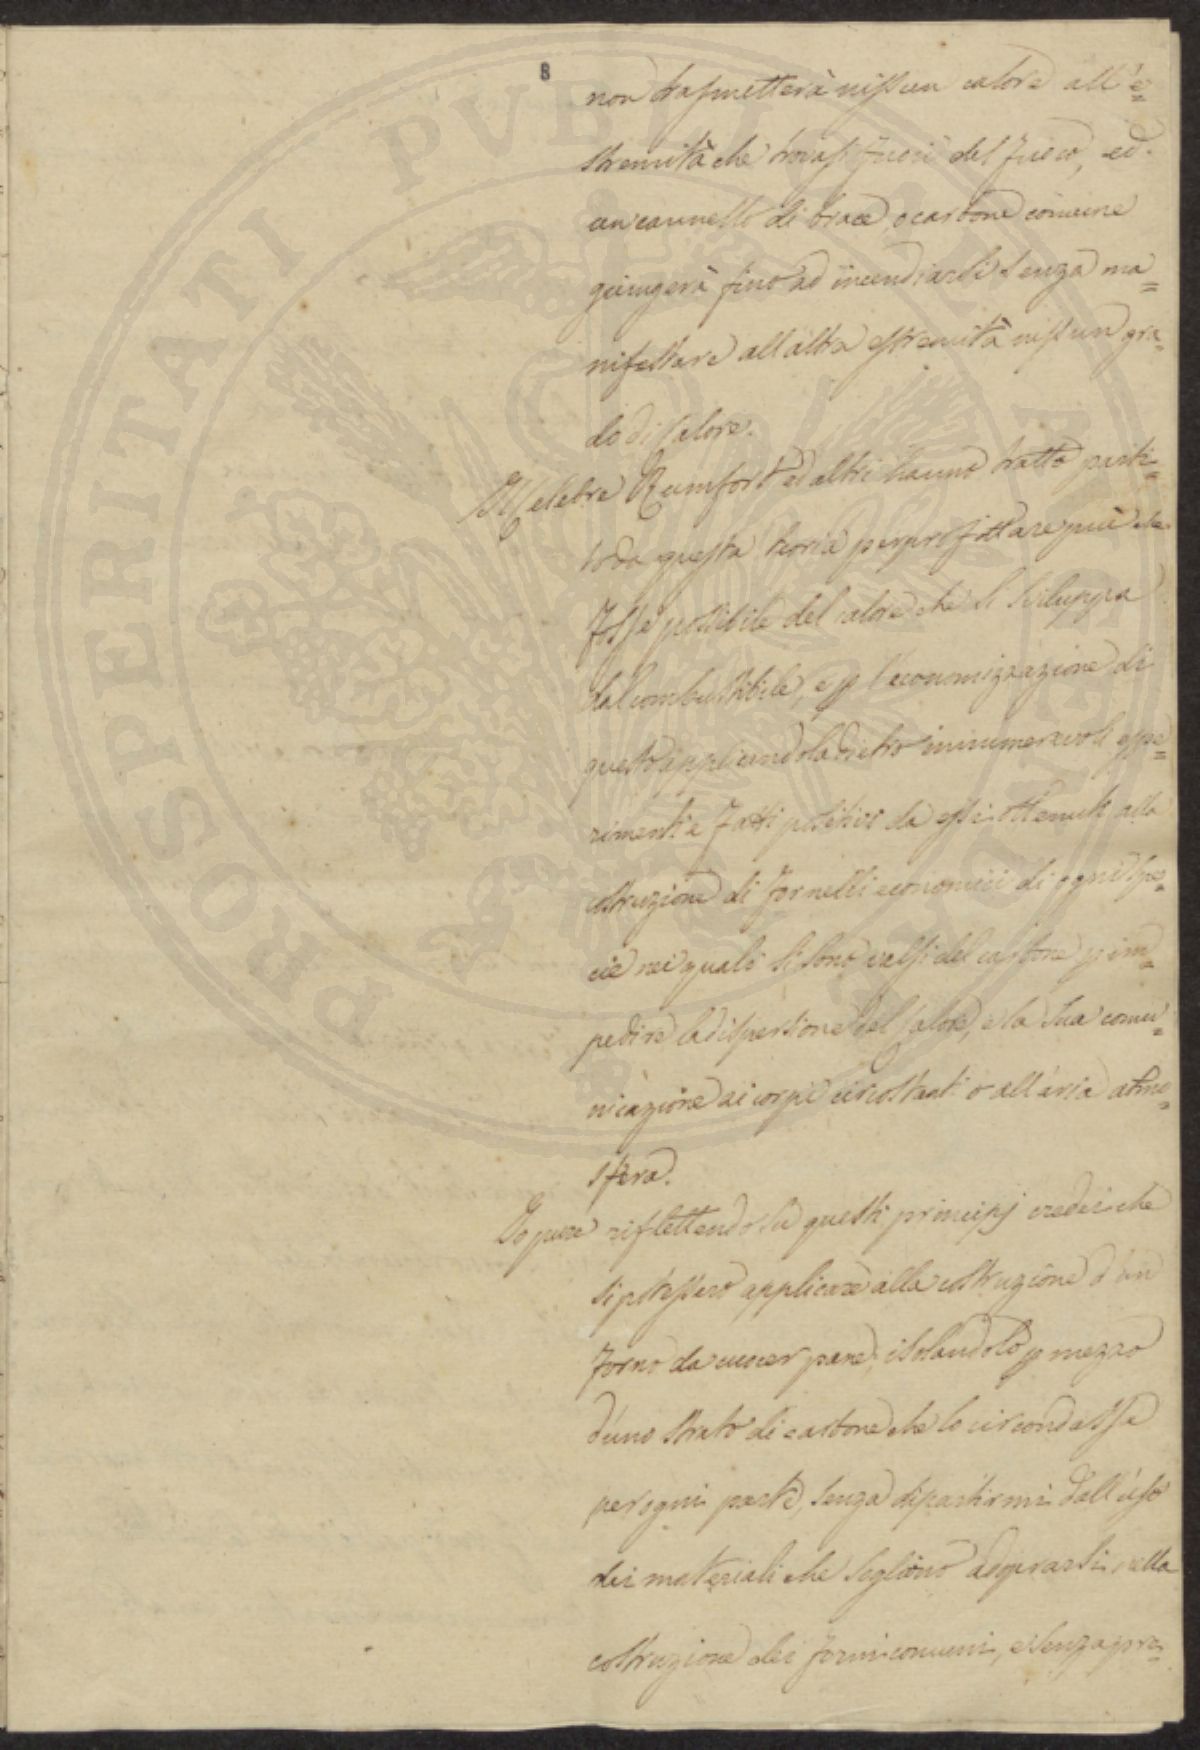 8
non trasmetterà nissun calore all'e=
stremità che trovasi fuori del fuoco, ed
un cannello di brace o carbone comune
giungerà fino ad incendiarsi senza ma=
nifestare all'altra estremità nissun gra=
do di calore.
Il Celebre Rumfort ed altri hanno tratto parti=
to da questa teoria per profittare più che
fosse possibile del calore che si sviluppa
dal combustibile, e p l'economizzazione di
questo applicandola dietro innumerevoli espe=
rimenti e fatti positivi da essi ottenuti alla
costruzione di fornelli economici di ogni spe=
cie nei quali si sono valsi del carbone p im=
pedire la dispersione del calore, e la sua comu=
nicazione ai corpi circostanti o all'aria atmo=
sfera.
Io pure riflettendo su questi principj credei che
si potessero applicare alla costruzione d'un
forno da cuocer pane, isolandolo p mezzo
d'uno strato di carbone che lo circondasse
per ogni parte, senza dipartirmi dall'uso
dei materiali che sogliono adoprarsi nella
costruzione dei forni comuni, e senza pre=
PROSPERITATI PVBLICAE AVGENDAE